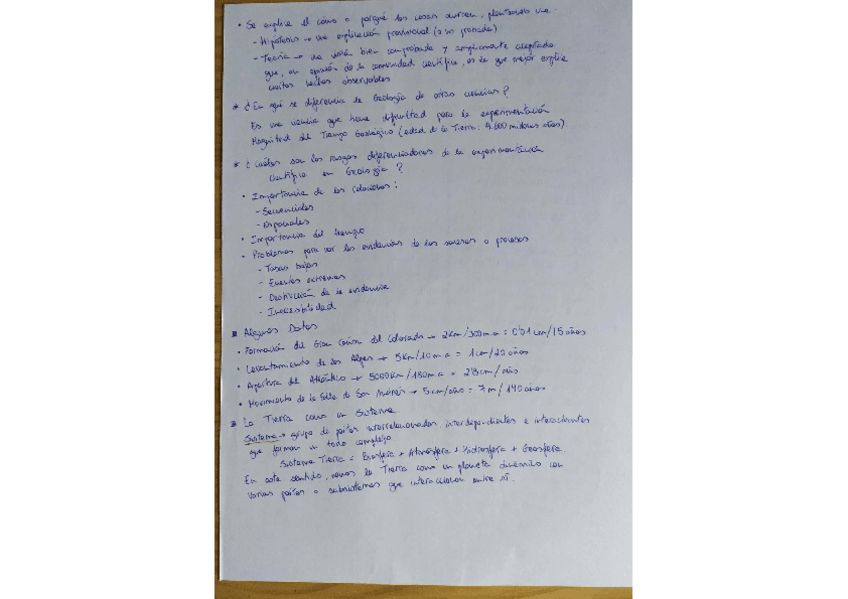 • Se explica el cómo o porqué las cosas ocurren, planteando una:
- Hipótesis → una explicación provisional (o sin probada)
- Teoría → una visión bien comprobada y ampliamente aceptada
que, en opinión de la comunidad científica, es la que mejor explica
ciertos hechos observables
* ¿En qué se diferencia la Geología de otras ciencias?
Es una ciencia que tiene dificultad para la experimentación
Magnitud del Tiempo Geológico (edad de la Tierra: 4.600 millones años).
* ¿Cuáles son los rasgos diferenciadores de la experimentación
científica en Geología?
• Importancia de las relaciones:
- Secuenciales
- Espaciales
• Importancia del tiempo
• Problemas para ver las evidencias de los sucesos o procesos
- Tasas bajas
- Eventos extremos
- Destrucción de la evidencia
- Inaccesibilidad
Algunos Datos
• Formación del Gran Cañón del Colorado → 2km/300m.a = 0'01cm/15 años
• Levantamiento de los Alpes → 5km/10m.a = 1cm/20 años
• Apertura del Atlántico → 5000km/180m.a = 2'8cm/año
• Movimiento de la Falla de San Andrés → 5cm/año = 7m/140 años
La Tierra como un Sistema
Sistema → grupo de partes interrelacionadas, interdependientes e interactuantes
que forman un todo complejo
Sistema Tierra = Biosfera + Atmósfera + Hidrosfera + Geosfera.
En este sentido, vemos la Tierra como un planeta dinámico con
varias partes o subsistemas que interaccionan entre sí.